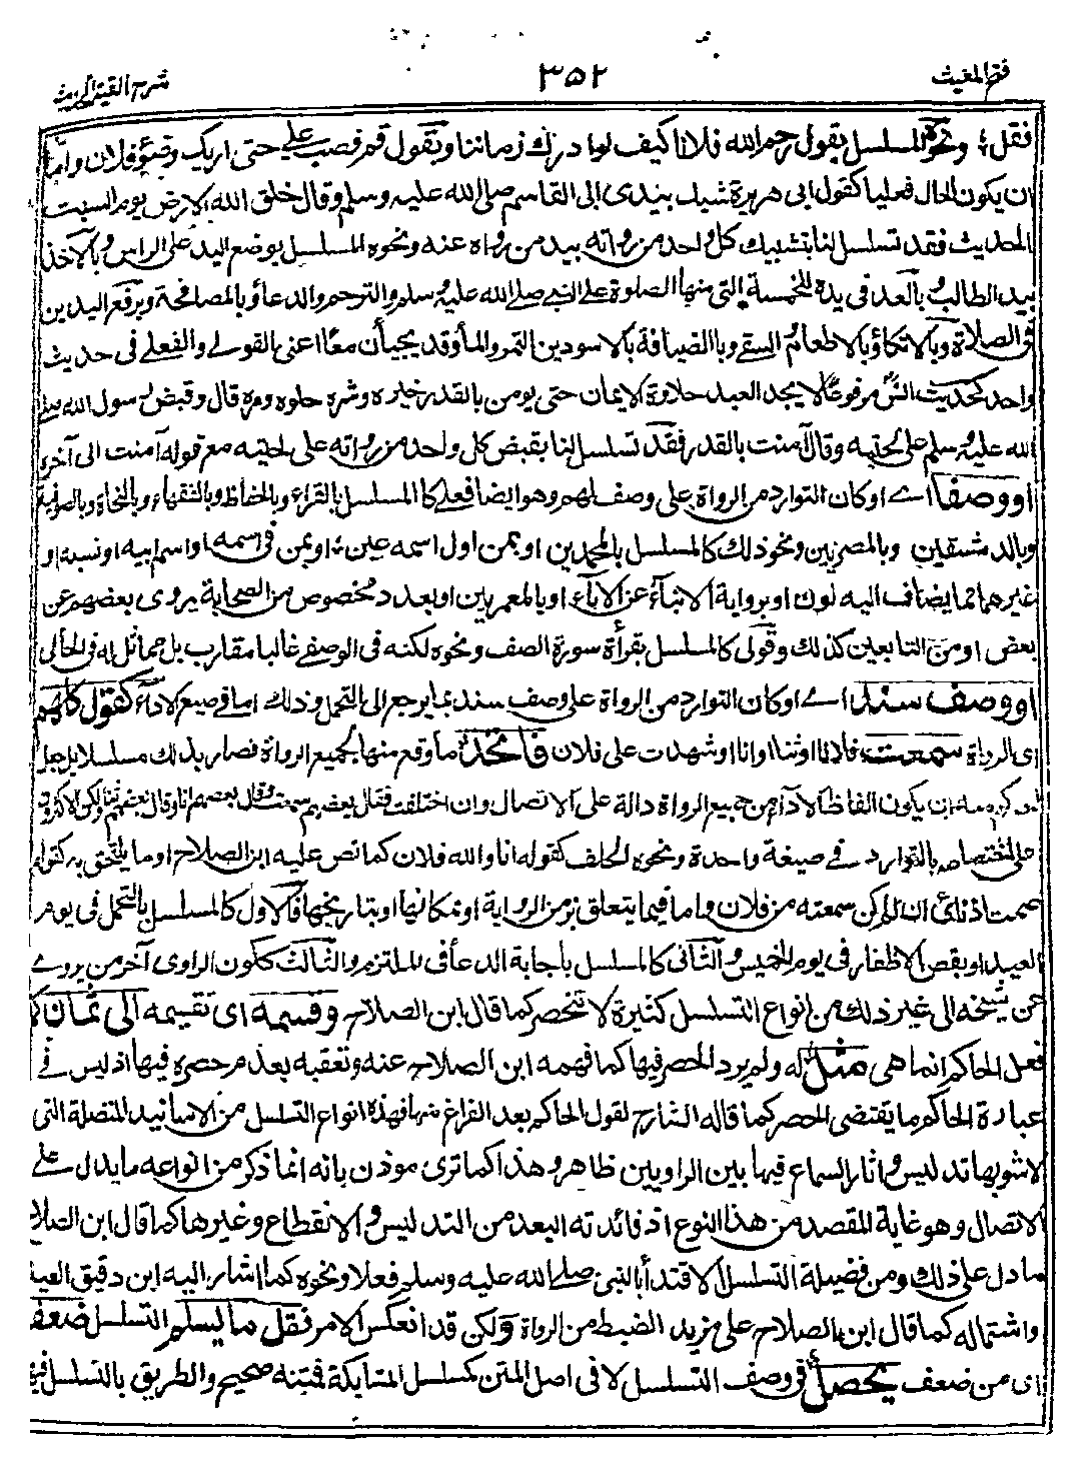 فتح المغيث ٣٥٢ شرح الفية الحديث
فقل؛ ونحوه المسلسل بقول رحم الله فلانا كيف لو ادرك زماننا وبقول قم فصب علي حتى اريك وضوء فلان واما
ان يكون الحال فعليا كقول ابى هريرة شبك بيدى ابى القاسم صلى الله عليه وسلم وقال خلق الله الارض يوم السبت
الحديث فقد تسلسل لنا بتشبيك كل واحد من رواته بيد من رواه عنه ونحوه المسلسل بوضع اليد على الراس وبالآخذ
بيد الطالب وبالعد فى يده للخمسة التى منها الصلوة على النبي صلے الله عليه وسلم والترحم والدعاء وبالمصافحة وبرفع اليدين
فى الصلاة وبالاتكاء وبالاطعام والسقے وبالضيافة بالاسودين التمر والماء وقد يجيأن معًا اعنى القولے والفعلے فى حديث
واحد كحديث انس مرفوعًا لا يجد العبد حلاوة الايمان حتى يومن بالقدر خيره وشره حلوه ومره قال وقبض رسول الله صلے
الله عليه وسلم على لحيته وقال آمنت بالقدر فقد تسلسل لنا بقبض كل واحد من رواته على لحيته مع قوله آمنت الى آخره
او وصفا اے او كان التوارد من الرواة على وصف لهم وهو ايضا فعلے كالمسلسل بالقراء وبالحفاظ وبالفقهاء وبالنحاة وبالصوفية
وبالدمشقيين وبالمصريين ونحو ذلك كالمسلسل بالمحمدين او بمن اول اسمه عين؛ او بمن فى اسمه او اسم ابيه او نسبه او
غيرهما مما يضاف اليه نون او برواية الابناء عن الآباء او بالمعمرين او بعدد مخصوص من الصحابة يروى بعضهم عن
بعض او من التابعين كذلك وقولى كالمسلسل بقرأة سورة الصف ونحوه لكنه فى الوصفے غالبا مقارب بل مماثل له فى الحالى
او وصف سند اے او كان التوارد من الرواة على وصف سند بما يرجع الى التحمل وذلك اما فى صيغ الاداء كقول كلهم
اى الرواة سمعت فلانا او ثنا او انا او شهدت على فلان فاتحد ما وقع منها لجميع الرواة فصار بذلك مسلسلا بل جعل
الحاكم منه ان يكون الفاظ الاداء من جميع الرواة دالة على الاتصال وان اختلفت فقال بعضهم سمعت وقال بعضهم انا وقال بعضهم ثنا ولكن الاكثرون
على اختصاصه بالتوارد فے صيغة واحدة ونحوه الحلف كقوله انا والله فلان كما نص عليه ابن الصلاح او ما يلتحق به كقوله
صمت اذناى ان لم اكن سمعته من فلان واما فيما يتعلق بزمن الرواية او بمكانها او بتاريخها فالاول كالمسلسل بالتحمل فى يوم
العيد او بقص الاظفار فى يوم الخميس والثانى كالمسلسل باجابة الدعاء فى الملتزم والثالث ككون الراوى آخر من يروے
عن شيخه الى غير ذلك من انواع التسلسل كثيرة لا تنحصر كما قال ابن الصلاح وقسمه اى تقسيمه الى ثمان كما
فعل الحاكم انما هى مثل له ولم يرد الحصر فيها كما فهمه ابن الصلاح عنه وتعقبه بعدم حصره فيها اذ ليس فے
عبارة الحاكم ما يقتضى الحصر كما قاله الشارح لقول الحاكم بعد الفراغ منها فهذه انواع التسلسل من الاسانيد المتصلة التى
لا يشوبها تدليس واثار السماع فيها بين الراويين ظاهر وهذا كما ترى موذن بانه انما ذكر من انواعه ما يدل على
الاتصال وهو غاية المقصد من هذا النوع اذ فائدته البعد من التدليس والانقطاع وغيرها كما قال ابن الصلاح
ما دل على ذلك ومن فضيلة التسلسل الاقتدأ بالنبى صلے الله عليه وسلم فعلا ونحوه كما اشار اليه ابن دقيق العيد
واشتماله كما قال ابن الصلاح على مزيد الضبط من الرواة ولكن قد انعكس الامر فقل ما يسلم التسلسل ضعفا
اى من ضعف يحصل فى وصف التسلسل لا فى اصل المتن كمسلسل المشابكة فمتنه صحيح والطريق بالتسلسل فيها